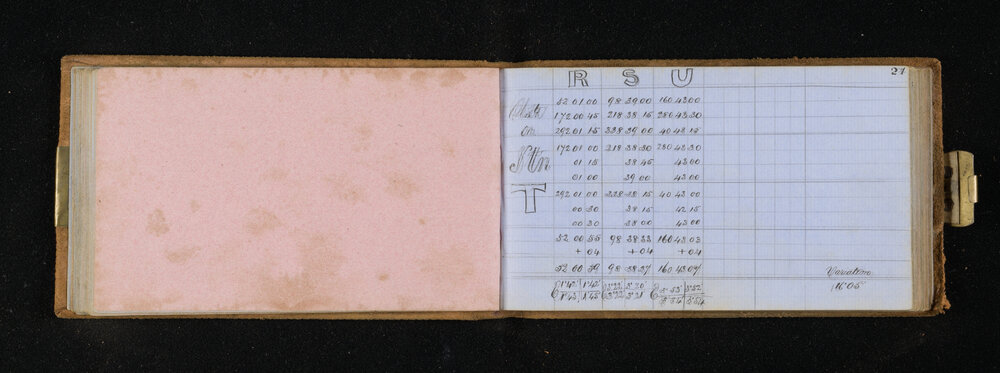 21
R S U
52 01 00 98 39 00 160 43 00
172 00 45 218 38 15 280 43 30
on 292 01 15 338 39 00 40 43 15
Sttn 172 01 00 218 38 30 280 43 30
01 15 38 45 43 00
01 00 39 00 43 00
T 292 01 00 338 38 15 40 43 00
00 30 38 15 42 15
00 30 38 00 43 00
52 00 55 98 38 33 160 43 03
+04 +04 +04
52 00 59 98 38 37 160 43 07
Variation
16°05'